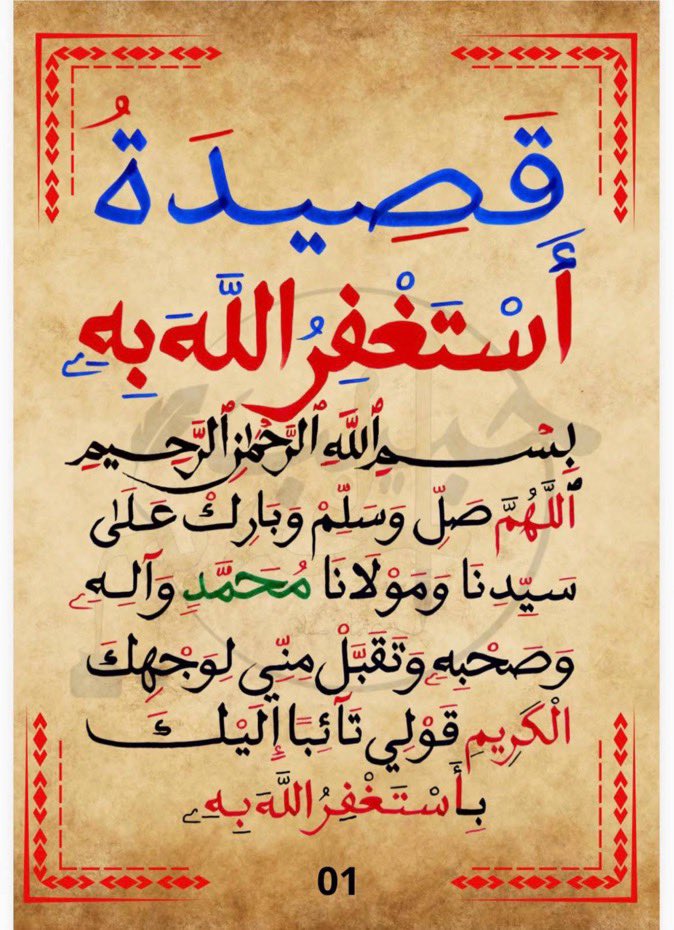 قَصِيدَةُ
أَسْتَغْفِرُ اللَّهَ بِهِ
بِسْمِ ٱللَّهِ ٱلرَّحْمَٰنِ ٱلرَّحِيمِ
ٱللَّهُمَّ صَلِّ وَسَلِّمْ وَبَارِكْ عَلَىٰ
سَيِّدِنَا وَمَوْلَانَا مُحَمَّدٍ وَآلِهِ
وَصَحْبِهِ وَتَقَبَّلْ مِنِّي لِوَجْهِكَ
الْكَرِيمِ قَوْلِي تَآئِبًا إِلَيْكَ
بِأَسْتَغْفِرُ اللَّهَ بِهِ
01